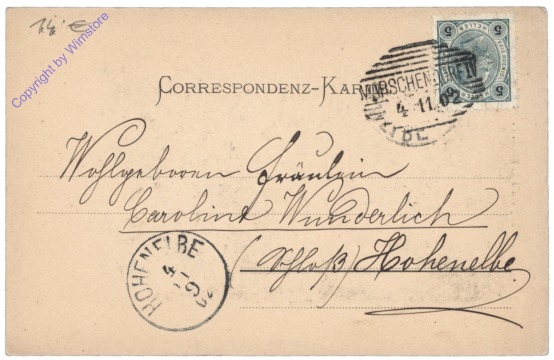 Copyright by Wimstore
5 HELLER 5
5 5
CORRESPONDENZ-KARTE
MARSCHENDORF IV
4 11.02
ELBE
Wohlgeboren Fräulein
Caroline Wunderlich
(Schloß) Hohenelbe
HOHENELBE
4
02